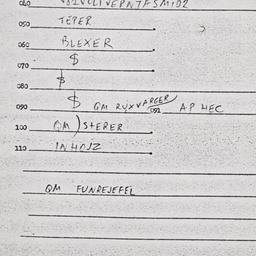 050 TEPER
060 BLEXER
070 $
080 $
090 $ QM RYXVARGER 092 AP HEC
100 QM) STERER
110 INHOJZ
QM FUNREJEFEL